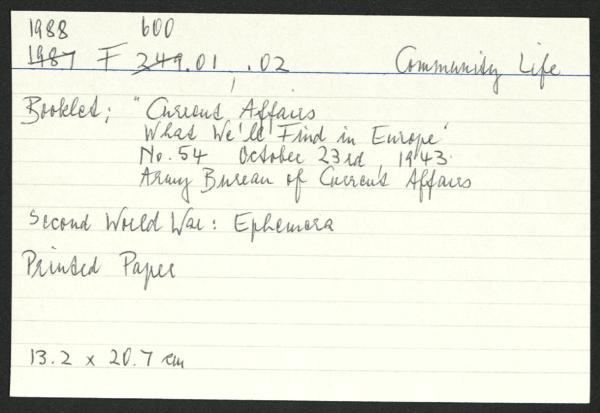 1988 600
1987 F 249.01 , .02 Community Life
Booklet; "Current Affairs
What We'll Find in Europe"
No. 54 October 23rd, 1943.
Army Bureau of Current Affairs
Second World War: Ephemera
Printed Paper
13.2 x 20.7 cm